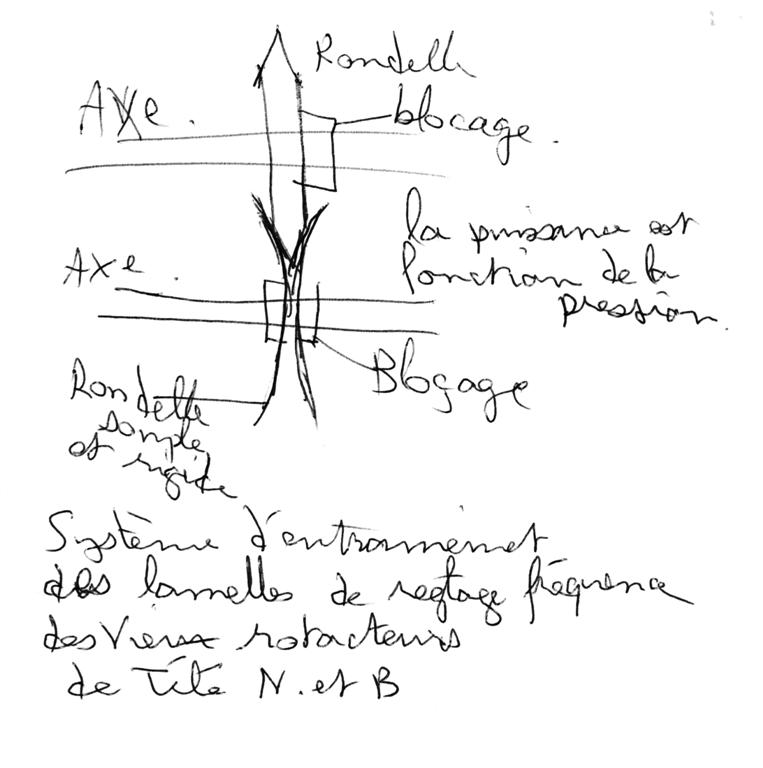 Rondelle
blocage.
Axe.
la puissance est
fonction de la
pression.
Axe.
Blocage
Rondelle
souple
et rigide
Système d'entrainement
des lamelles de reglage fréquence
des vieux rotacteurs
de Télé N. et B